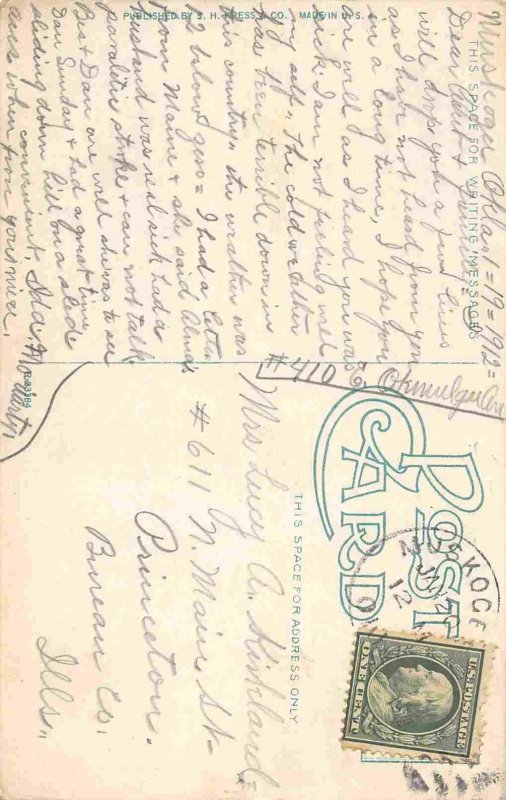 PUBLISHED BY S. H. KRESS & CO. MADE IN U. S. A.
THIS SPACE FOR WRITING MESSAGES
Muskogee Okla 1=19=1912=
Dear Aunt &
will drop you a few lines
as I have not heard from you
in a long time, I hope you
are well as I heard you was
sick. I am not feeling well
my self,, The cold weather
has been terrible down in
this country,, the weather was
12 below zero = I had a letter
from Maine & she said Alma's
husband was real sick had a
paralitic stroke & can not talk.
Be & Dan are well she was to see
Dan Sunday & had a great time
sliding down hill on a slide
convenient, Add. 410 Warty,
Ans when from your niece,
#410 E. Okmulgee Ave
B-23384
POST
CARD
THIS SPACE FOR ADDRESS ONLY
Mrs Lucy A. Kirkland=
#611 N. Main St-
Princeton.
Bureau Co.
Ills,,
SKOGE
JAN 20
12
U.S. POSTAGE
ONE CENT